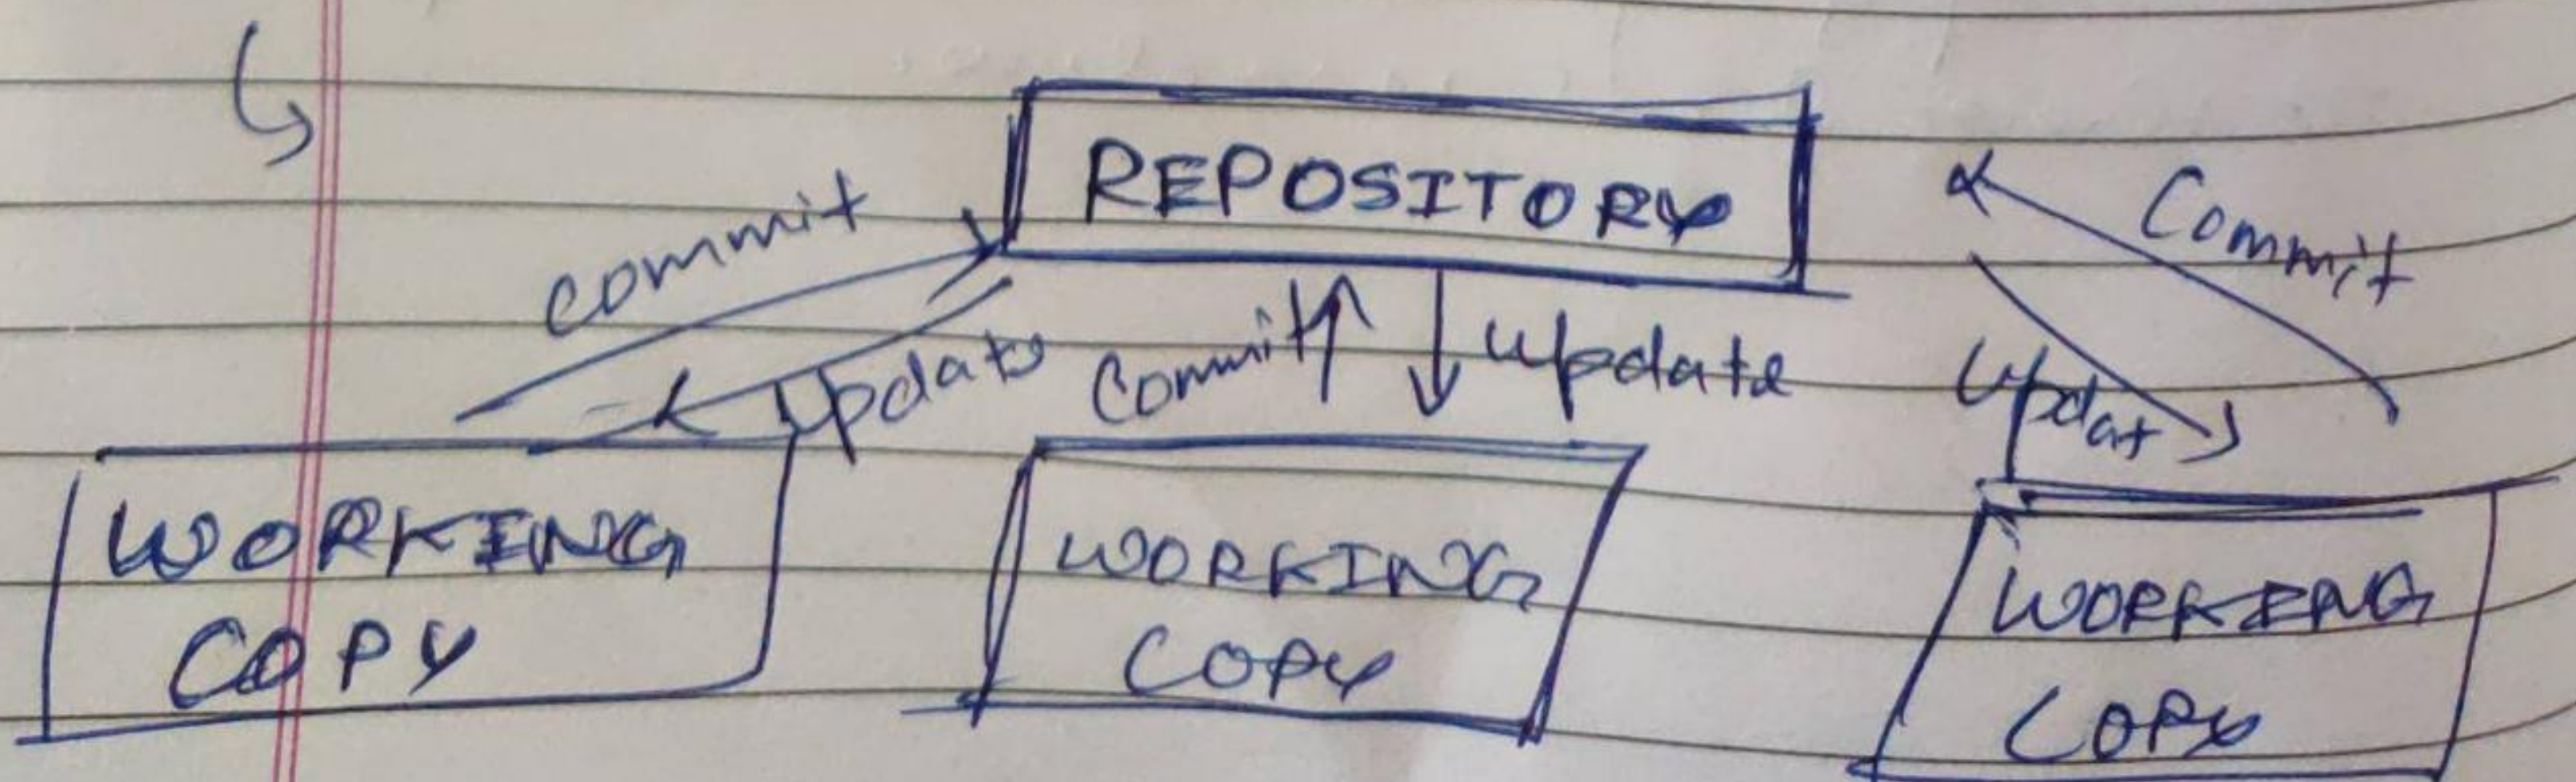 REPOSITORY
commit
Update
Commit
update
Commit
Updat
WORKING
COPY
WORKING
COPY
WORKING
COPY